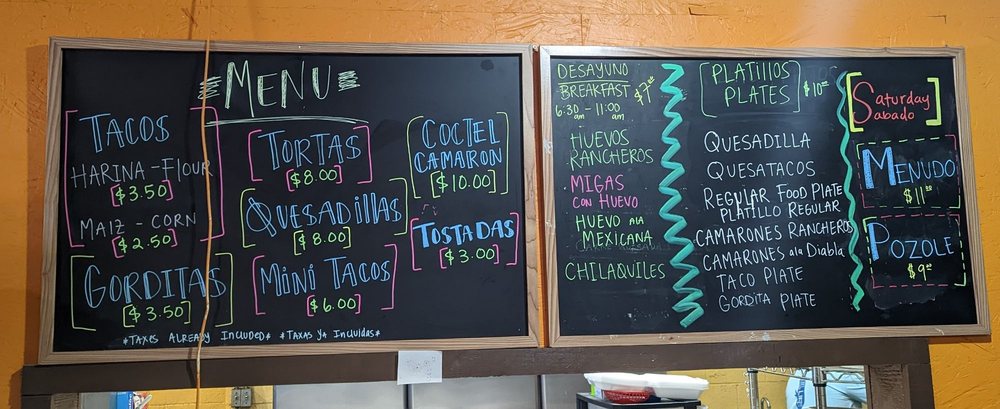 MENU
TACOS
HARINA - FLOUR
$3.50
MAIZ - CORN
$2.50
GORDITAS
$3.50
TORTAS
$8.00
QUESADILLAS
$8.00
MINI TACOS
$6.00
COCTEL
CAMARON
$10.00
TOSTADAS
$3.00
*TAXES ALREADY INCLUDED* *TAXAS YA INCLUIDAS*
DESAYUNO
BREAKFAST $7.00
6:30 am - 11:00 am
HUEVOS
RANCHEROS
MIGAS
CON HUEVO
HUEVO ALA
MEXICANA
CHILAQUILES
PLATILLOS
PLATES $10.00
QUESADILLA
QUESATACOS
REGULAR FOOD PLATE
PLATILLO REGULAR
CAMARONES RANCHEROS
CAMARONES ala Diabla
TACO PLATE
GORDITA PLATE
Saturday
Sabado
MENUDO
$11.00
POZOLE
$9.00